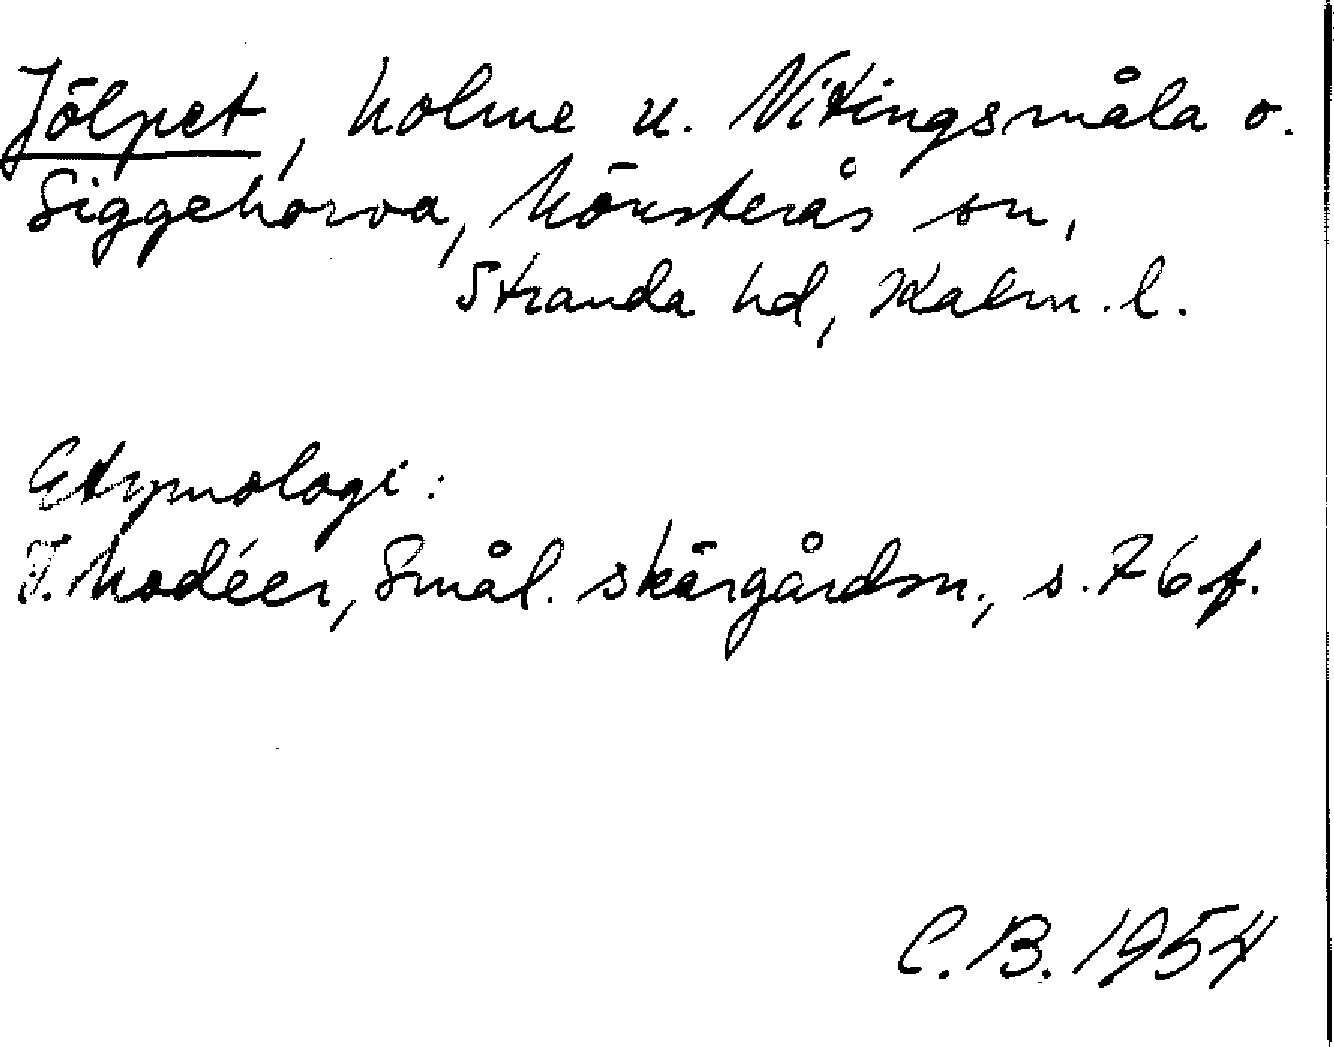 Jölpet, holme u. Vitingsmåla o.
Siggehorva, Mönsterås sn,
Stranda hd, Kalm. l.
Etymologi:
I. Modéer, Smål. skärgårdsn., s. 76 f.
C. B. 1954